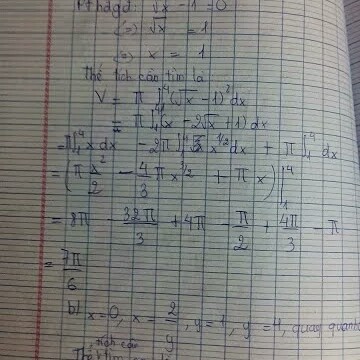 Pthđgđ: √x - 1 = 0
(=) √x = 1
(=) x = 1
Thể tích cần tìm là
V = π ∫₁⁴ (√x - 1)² dx
= π ∫₁⁴ (x - 2√x + 1) dx
= π ∫₁⁴ x dx - 2π ∫₁⁴ x^1/2 dx + π ∫₁⁴ dx
= (π x²/2 - 4/3 π x^3/2 + π x) |₁⁴
= 8π - 32π/3 + 4π - π/2 + 4π/3 - π
= 7π/6
b) x = 0, x = 2/y, y = 1, y = 4, quay quanh
tích cần